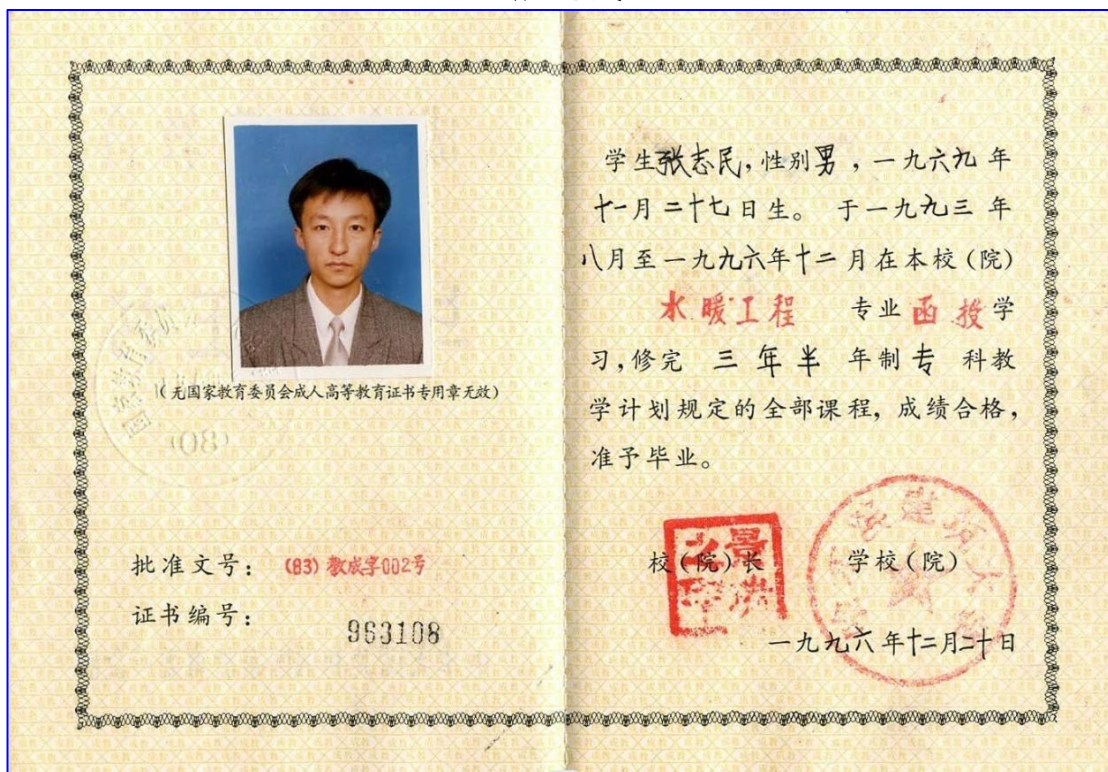 (无国家教育委员会成人高等教育证书专用章无效)
批准文号: (83) 教成字002号
证书编号: 963108
学生张志民,性别男,一九六九年
十一月二十七日生。于一九九三年
八月至一九九六年十二月在本校(院)
水暖工程 专业函授学
习,修完 三年半 年制专科教
学计划规定的全部课程,成绩合格,
准予毕业。
校(院)长 学校(院)
一九九六年十二月二十日